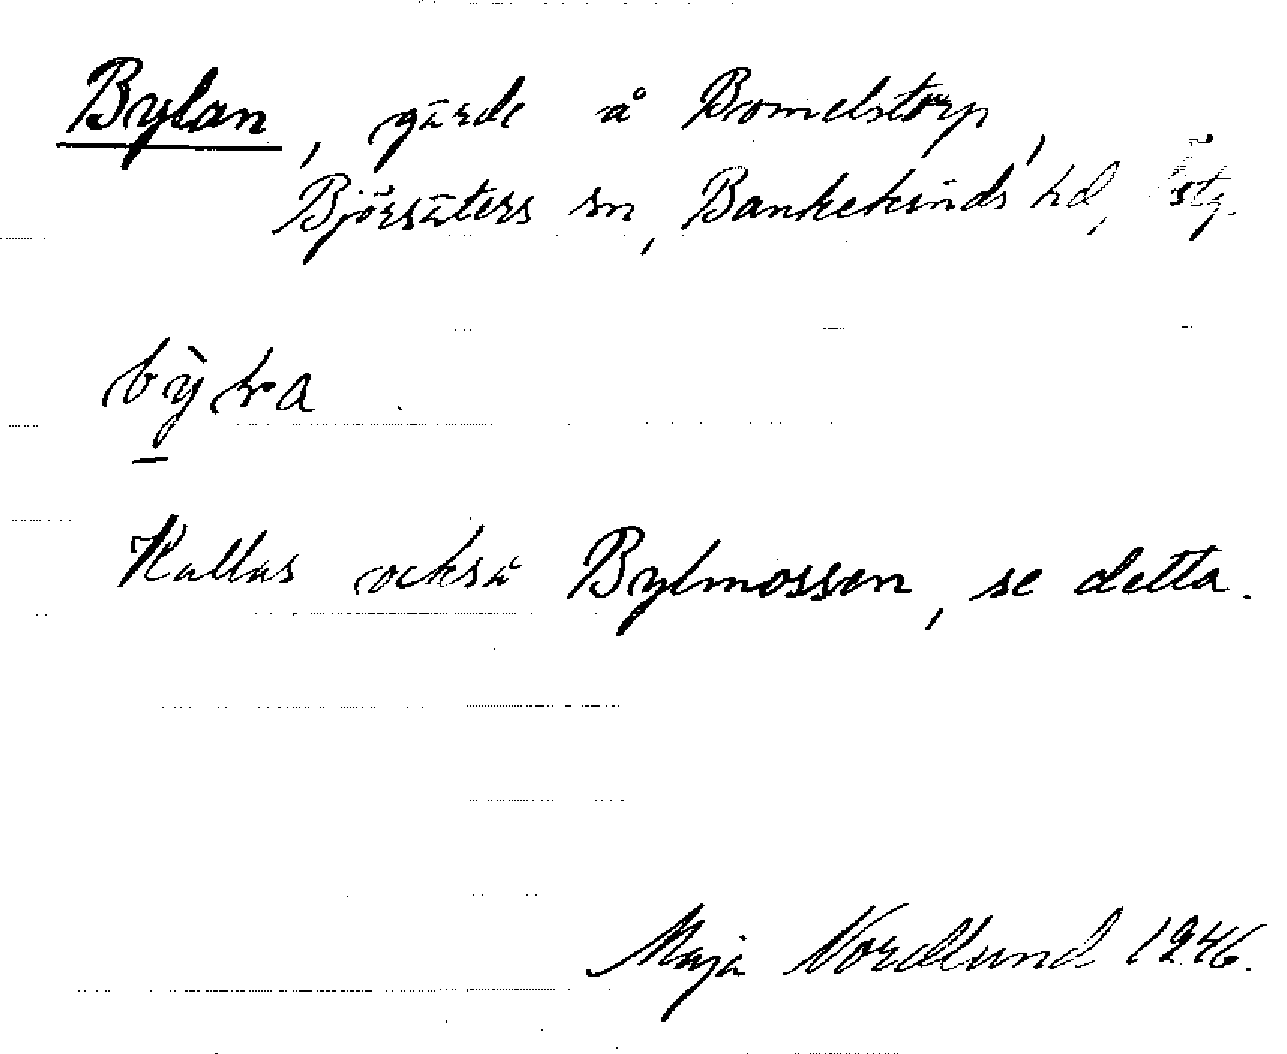 Bylan, gärde å Bomelstorp,
Björsäters sn, Bankekinds hd, Östg.
Kallas också Bylmossen, se detta.
Maja Nordlund 1946.